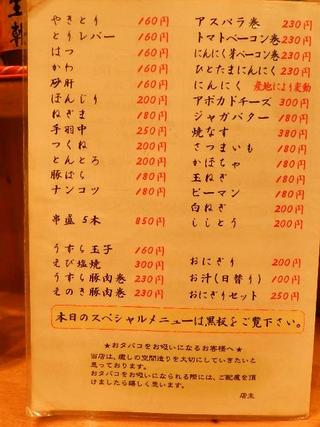 やきとり 160円
とりレバー 160円
はつ 160円
かわ 160円
砂肝 160円
ぼんじり 200円
ねぎま 180円
手羽中 250円
つくね 200円
とんとろ 200円
豚ばら 180円
ナンコツ 180円
串盛 5本 850円
うずら玉子 160円
えび塩焼 300円
うずら豚肉巻 230円
えのき豚肉巻 230円
アスパラ巻 230円
トマトベーコン巻 230円
にんにく芽ベーコン巻 230円
ひとたまにんにく 230円
にんにく 産地により変動
アボカドチーズ 300円
ジャガバター 180円
焼なす 380円
さつまいも 180円
かぼちゃ 180円
玉ねぎ 180円
ピーマン 180円
白ねぎ 200円
ししとう 200円
おにぎり 200円
お汁(日替り) 100円
おにぎりセット 250円
本日のスペシャルメニューは黒板をご覧下さい。
★おタバコをお吸いになるお客様へ★
当店は、癒しの空間造りを大切にしていきたいと
思っております。
おタバコをお吸いになられる際には、ご配慮を頂
けましたら嬉しく思います。
店主